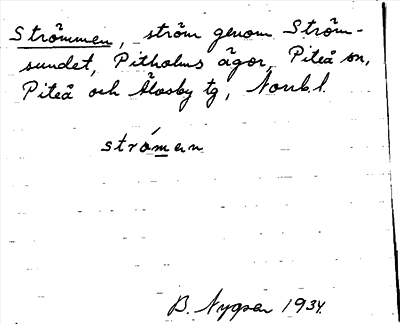 Strömmen, ström genom Ström-
sundet, Pitholms ägor, Piteå sn,
Piteå och Älvsby tg, Norrb. l.
strömen
B. Nygren 1934.